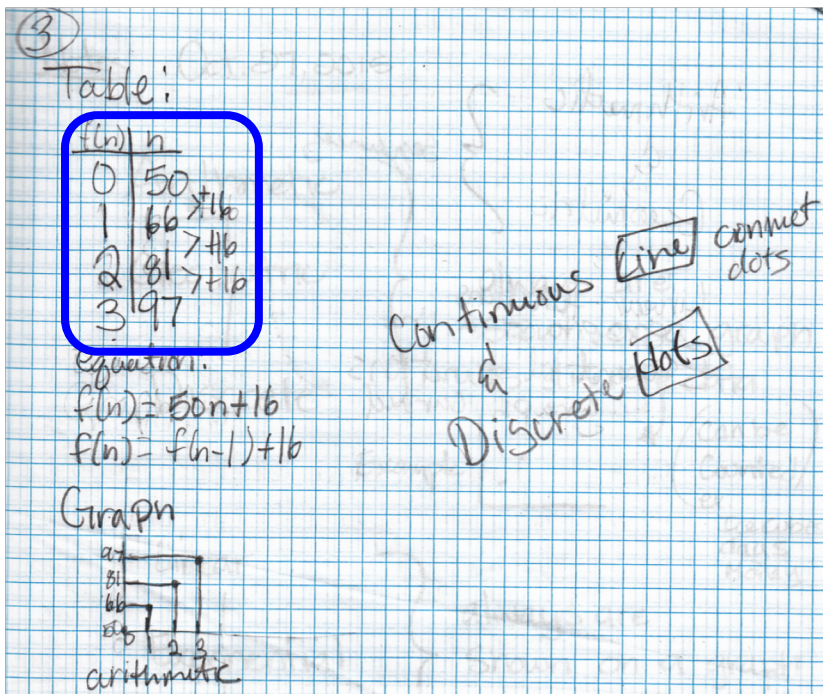 3
Table:
f(n) n
0 50
1 66 > +16
2 81 > +16
3 97 > +16
equation:
f(n) = 50n+16
f(n) = f(n-1)+16
Graph
97
81
66
50
0 1 2 3
arithmetic
Continuous line connect
dots
&
Discrete dots